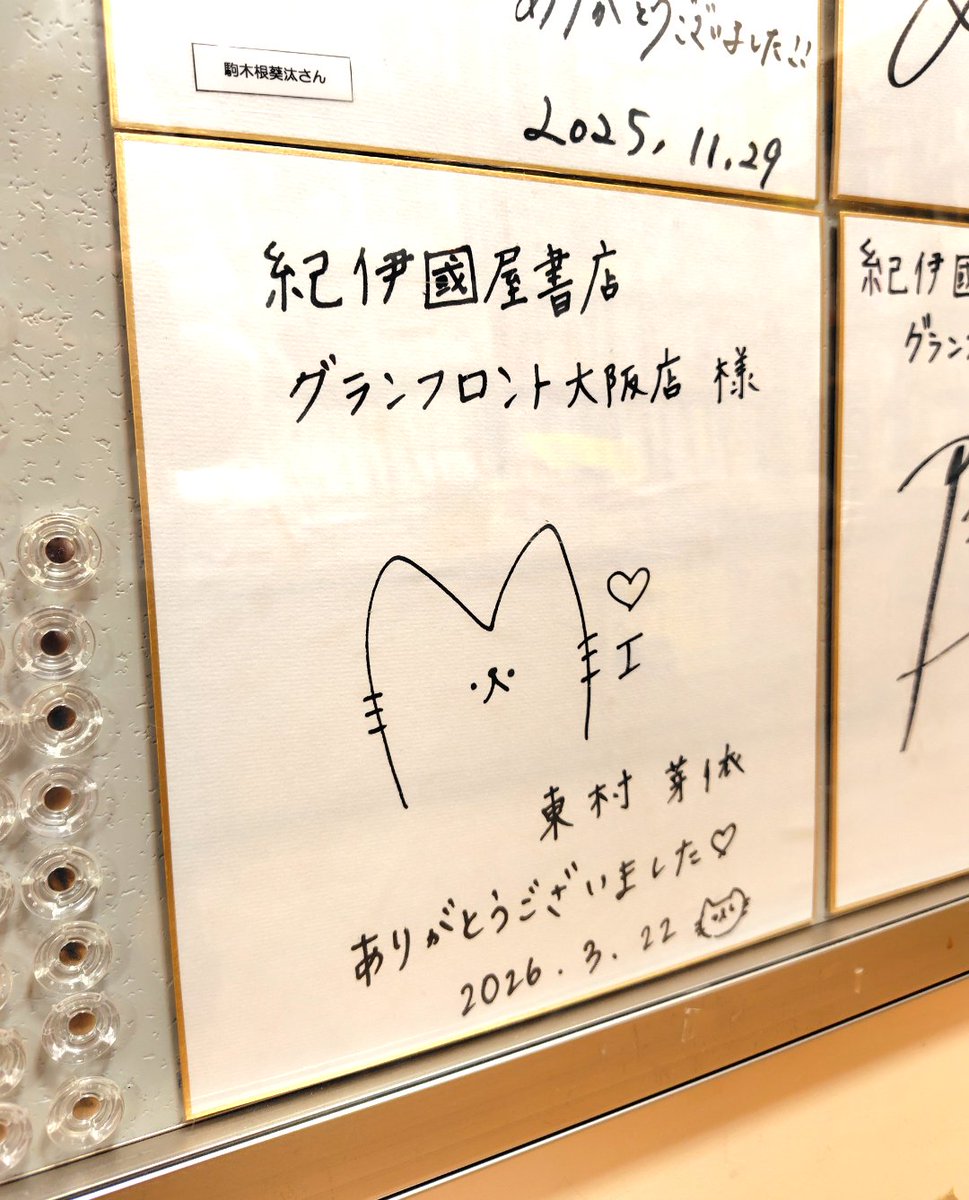 ありがとうございました!!
駒木根葵汰さん
2025, 11.29
紀伊國屋書店
グランフロント大阪店 様
♡
エ
東村 芽依
ありがとうございました♡
2026. 3. 22
紀伊國
グラン